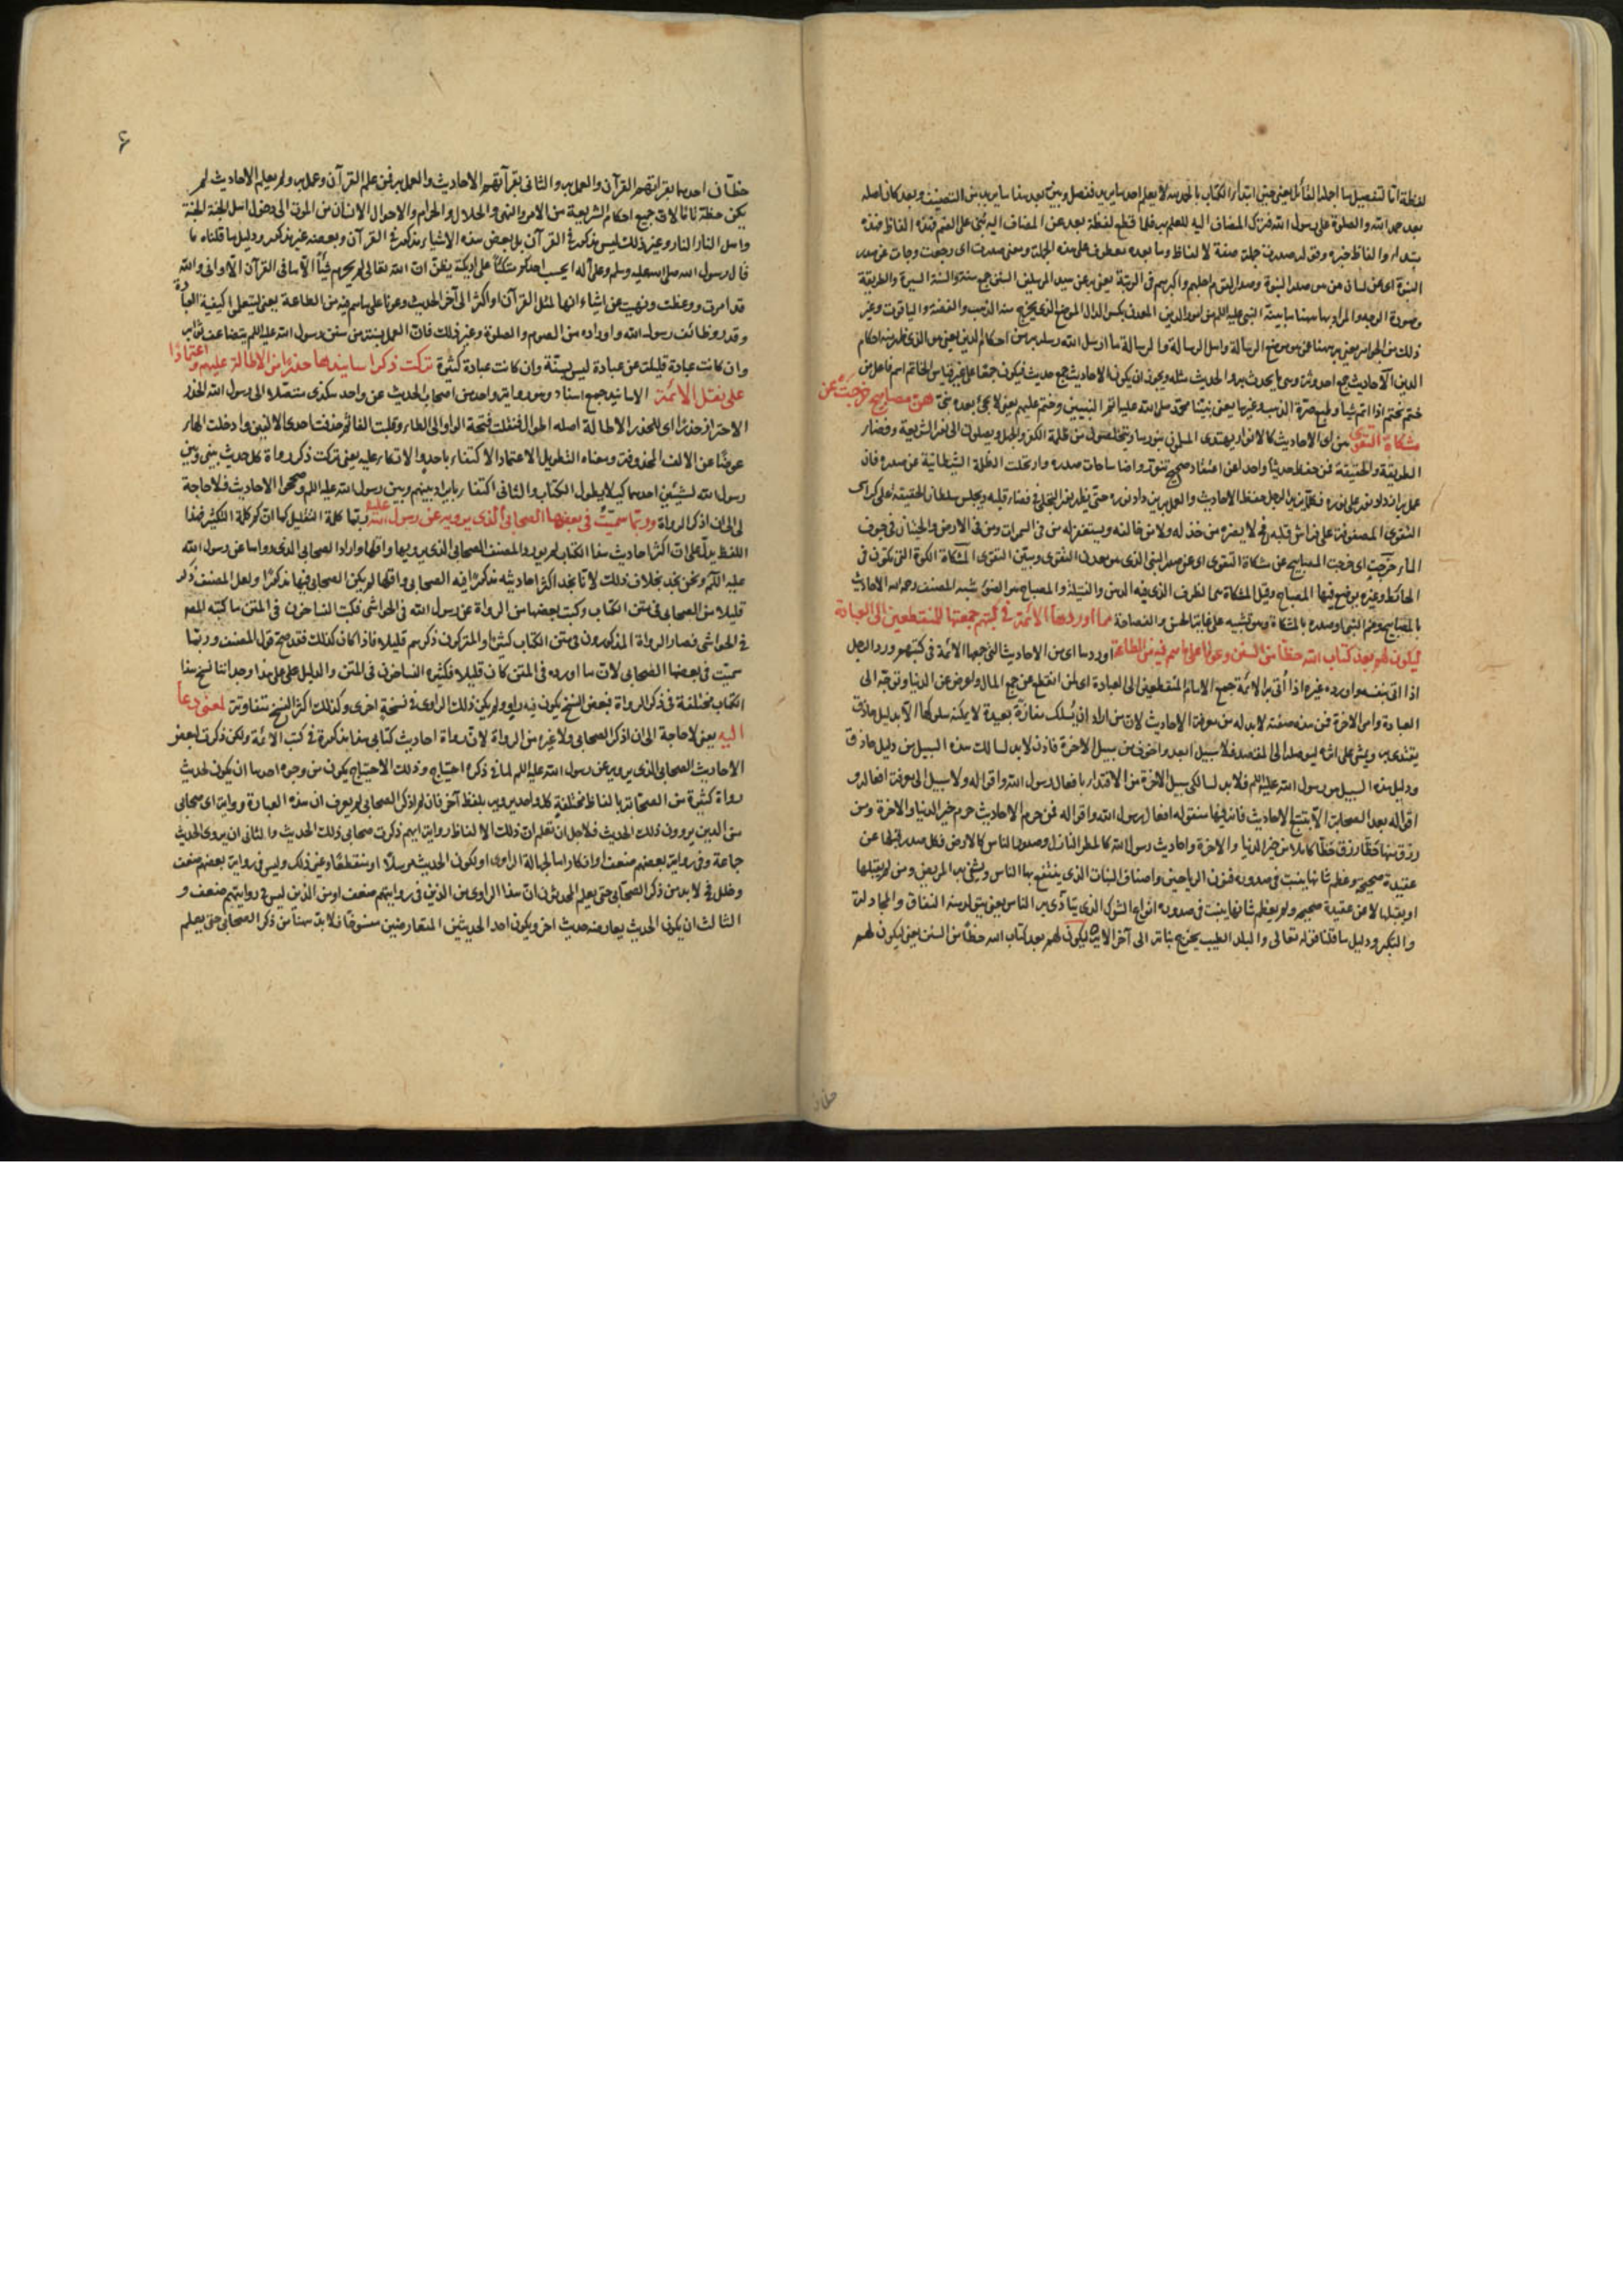 لفظة اما لتفصيل ما اجله القائل يعني حين ابتداء الكتاب بالحمد لله لا يعلم احد ما يريد ففصل وبين بعد هذا ما يريد من التصنيف وبعد كان اصله
بعد حمد الله والصلوة على رسول الله فترك المضاف اليه للعلم به فلما قطع لفظة بعد عن المضاف اليه بني على الضم فهذه الفاظ هذه
مبتداء والفاظ خبره وقوله صدرت جملة صفة لالفاظ وما بعده معطوف على هذه الجملة ومعنى صدرت اى رجعت وجاءت عن صدر
النبوة اى عن لسان من هو صدر النبوة وصدر القوم اعلمهم واكبرهم في الرتبة يعني به عن سيد المرسلين السنن جمع سنة والسنة السيرة والطريقة
وصورة الوجه والمراد بها هنا ما بينه النبي عليه السلم من امور الدين المعدن بكسر الدال الموضع الذى يخرج منه الذهب والفضة والياقوت وغير
ذلك من الجواهر يعني به هنا عن موضع الرسالة واصل الرسالة والرسالة ما ارسل الله رسله به من احكام الدين يعني من الذى ظهر منه احكام
الدين الاحاديث جمع احدوثة وهي ما يحدث به والحديث مثله ويجوز ان يكون الاحاديث جمع حديث فيكون جمعا على غير قياس الخاتم اسم فاعل من
ختم يختم اذا اتم شيأ وطبع صرة الذهب وغيرها يعني نبينا محمد صلى الله عليه خاتم النبيين وختم عليهم يعني لا يجئ بعده نبي هن مصابيح خرجت عن
مشكاة التقوى هن اى الاحاديث كالانوار يهتدى المسلمون بنورها ويتخلصون من ظلمة الكفر والجهل ويصلون الى نور الشريعة وفضاء
الطريقة والحقيقة فمن حفظ حديثا واحدا عن اعتقاد صحيح تنور واضا ساحات صدره وارتحلت الظلمة الشيطانية عن صدره فان
عمل به ازداد نور على نوره فكلما يزيد الرجل حفظ الاحاديث والعمل بهن زاد نوره حتى يظهر نور التجلي في فضاء قلبه ويجلس سلطان الحقيقة على كراسي
التقوى المصفوفة على فراش قلبه فح لا يضره من خذله ولا من خالفه ويستغفر له من في السموات ومن في الارض والحيتان في جوف
الماء خرجت اى خرجت المصابيح عن مشكاة التقوى اى عن صدر النبي الذى هو معدن التقوى وبيت التقوى المشكاة الكوة التي تكون في
الحائط وغيره يوضع فيها المصباح وقيل المشكاة هي الظرف الذى فيه الدهن والفتيلة والمصباح هو الضوء شبه المصنف رحمه الله الاحاديث
بالمصابيح وفم النبي وصدره بالمشكاة وهو تشبيه على غاية الحسن والفصاحة مما اوردها الائمة في كتبهم جمعتها للمنقطعين الى العبادة
ليكون لهم بعد كتاب الله حظا من السنن وعونا على ما هم فيه من الطاعة اوردها اى من الاحاديث التي جمعها الائمة في كتبهم ورد الرجل
اذا اتى بنفسه واورده غيره اذا اتى به الائمة جمع الامام المنقطعون الى العبادة اى لمن انقطع عن جمع المال واعرض عن الدنيا وتوجه الى
العبادة وامر الاخرة فمن هذه صفته لا بد له من معرفة الاحاديث لان من اراد ان يسلك مفازة بعيدة لا يمكنه سلوكها الا بدليل حاذق
يقتدى به ويمشي على اثره ليوصله الى المقصد فلا سبيل ابعد واخوف من سبيل الاخرة فاذن لا بد لسالك هذه السبيل من دليل حاذق
ودليل هذه السبيل هو رسول الله عليه السلم فلا بد لسالك سبيل الاخرة من الاقتداء بافعال رسول الله واقواله ولا سبيل الى معرفة افعاله و
اقواله بعد الصحابة الا بتتبع الاحاديث فان فيها منقوله افعال رسول الله واقواله فمن حرم الاحاديث حرم خير الدنيا والاخرة ومن
رزق منها حظا رزق حظا كاملا من خير الدنيا والاخرة واحاديث رسول الله كالمطر النازل وصدور الناس كالارض فكل صدر قبلها عن
عقيدة صحيحة وعظم شانها ينبت في صدوره فنون الرياحين واصناف النبات الذى ينتفع بها الناس ويشفي به المريض ومن لم يقبلها
او يقبلها لا عن عقيدة صحيحة ولم يعظم شانها ينبت في صدوره انواع الشوك الذى يتأذى به الناس يعني يتولد منه النفاق والمجادلة
والتكبر ودليل ما قلنا قوله تعالى والبلد الطيب يخرج نباته الى آخر الاية ليكون لهم بعد كتاب الله حظا من السنن يعني ليكون لهم
۶
حظان احدهما بقراءتهم القرآن والعمل به والثاني بقرآءتهم الاحاديث والعمل بهن فمن علم القرآن وعمل به ولم يعلم الاحاديث لم
يكن حظه تاما لان جميع احكام الشريعة من الامر والنهي والحلال والحرام والاحوال الانسان من الموت الى دخول اهل الجنة الجنة
واهل النار النار وغير ذلك ليس بمذكور في القرآن بل بعض هذه الاشياء مذكور في القرآن وبعضه غير مذكور ودليل ما قلناه ما
قال رسول الله صلى الله عليه وسلم وعلى آله ايحسب احدكم متكئا على اريكته يظن ان الله تعالى لم يحرم شيئا الا ما في القرآن الا واني والله
قد امرت ووعظت ونهيت عن اشياء انها لمثل القرآن او اكثر الى آخر الحديث وعونا على ما هم فيه من الطاعة يعني ليتعلم كيفية العبادة
وقدر وظائف رسول الله واوراده من الصوم والصلوة وغير ذلك فان العمل بسنة من سنن رسول الله عليه السلم يتضاعف ثوابه
وان كانت عبادة قليلة عن عبادة ليس بسنة وان كانت عبادة كثيرة تركت ذكر اسانيدها حذرا من الاطالة عليهم واعتمادا
على نقل الائمة الاسانيد جمع اسناد وهو رواية واحد من اصحاب الحديث عن واحد هكذى متصلا الى رسول الله الحذر
الاحتراز حذرا اى للحذر الاطالة اصله اطوال فنقلت فتحة الواو الى الطاء وقلبت الفا ثم حذفت احدى الالفين وادخلت الهاء
عوضا عن الالف المحذوفة ومعناه التطويل الاعتماد الاكتفاء باحد والاتكاء عليه يعني تركت ذكر رواة كل حديث بيني وبين
رسول الله لشيئين احدهما كيلا يطول الكتاب والثاني اكتفاء بايراد بينهم وبين رسول الله عليه السلم وصححوا الاحاديث فلا حاجة
لى الى ان اذكر الرواة وربما سميت في بعضها الصحابي الذى يرويه عن رسول الله عليه ربما كلمة التقليل كما ان كم كلمة التكثير هذا
اللفظ يدل على ان اكثر احاديث هذا الكتاب لم يورد المصنف الصحابي الذى يرويها واقلها واراد الصحابي الذى رواها عن رسول الله
عليه السلم ونحن نجد بخلاف ذلك لانا نجد اكثر احاديثه مذكورا فيه الصحابي واقلها لم يكن الصحابي فيها مذكورا ولعل المصنف ذكر
قليلا من الصحابي في متن الكتاب وكتب بعضها من الرواة عن رسول الله في الحواشي فكتب الناسخون في المتن ما كتبه المصنف
في الحواشي فصار الرواة المذكورون في متن الكتاب كثيرا والمتروكون ذكرهم قليلا فاذا كان كذلك فقد صح قول المصنف وربما
سميت في بعضها الصحابي لان ما اورده في المتن كان قليلا فكثره الناسخون في المتن والدليل على هذا وجداننا نسخ هذا
الكتاب مختلفة في ذكر الرواة فبعض النسخ يكون فيه راو ولم يكن ذلك الراوى في نسخة اخرى وكذلك اكثر النسخ متفاوتة لمعنى دعا
اليه يعني لا حاجة الى ان اذكر الصحابي ولا غيره من الرواة لان رواة احاديث كتابي هذا مذكورة في كتب الائمة ولكن ذكرت لبعض
الاحاديث الصحابي الذى يرويه عن رسول الله عليه السلم لما في ذكره احتياج وذلك الاحتياج يكون من وجوه احدها ان يكون لحديث
رواة كثيرة من الصحابة بالفاظ مختلفة كل واحد يرويه بلفظ آخر فان لم اذكر الصحابي لم يعرف ان هذه العبارة رواية اى صحابي
من الذين يروون ذلك الحديث فلاجل ان تعلم ان ذلك الالفاظ رواية ايهم ذكرت صحابي ذلك الحديث والثاني ان يروى الحديث
جماعة وفي رواية بعضهم ضعف او انكار اما لجهالة الراوى او لكون الحديث مرسلا او منقطعا وغير ذلك وليس في رواية بعضهم ضعف
وخلل فح لا بد من ذكر الصحابي حتى يعلم المحدثون ان هذا الراوى من الذين في روايتهم ضعف او من الذين ليس في روايتهم ضعف و
الثالث ان يكون الحديث يعارضه حديث اخر ويكون احد الحديثين المتعارضين منسوخا فلا بد ههنا من ذكر الصحابي حتى يعلم